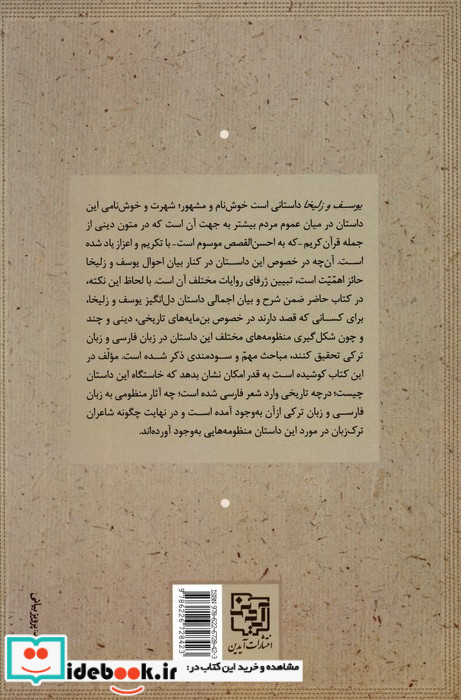 یوسف و زلیخا داستانی است خوش‌نام و مشهور؛ شهرت و خوش‌نامی این
داستان در میان عموم مردم بیشتر به جهت آن است که در متون دینی از
جمله قرآن کریم -که به احسن‌القصص موسوم است- با تکریم و اعزاز یاد شده
است. آن‌چه در خصوص این داستان در کنار بیان احوال یوسف و زلیخا
حائز اهمّیّت است، تبیین ژرفای روایات مختلف آن است. با لحاظ این نکته،
در کتاب حاضر ضمن شرح و بیان اجمالی داستان دل‌انگیز یوسف و زلیخا،
برای کسانی که قصد دارند در خصوص بن‌مایه‌های تاریخی، دینی و چند
و چون شکل‌گیری منظومه‌های مختلف این داستان در زبان فارسی و زبان
ترکی تحقیق کنند، مباحث مهمّ و سودمندی ذکر شده است. مؤلّف در
این کتاب کوشیده است به قدر امکان نشان بدهد که خاستگاه این داستان
چیست؛ درچه تاریخی وارد شعر فارسی شده است؛ چه آثار منظومی به زبان
فارسی و زبان ترکی ازآن به‌وجود آمده است و در نهایت چگونه شاعران
ترک‌زبان در مورد این داستان منظومه‌هایی به‌وجود آورده‌اند.
ISBN: 978-622-6728-42-3
9786226728423
انتشارات آیدین
پرویز بیانی
مشاهده و خرید این کتاب در:
idebook.ir